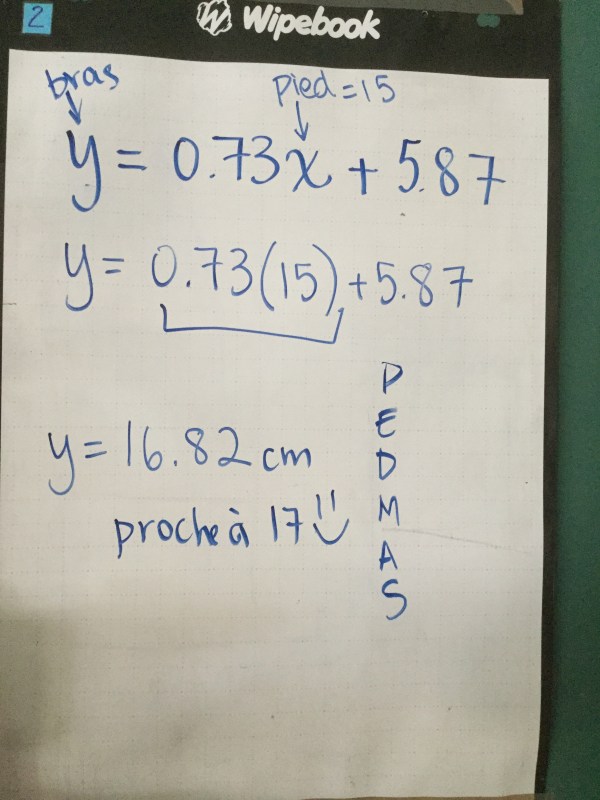 2
Wipebook
bras
pied = 15
y = 0.73x + 5.87
y = 0.73(15) + 5.87
P
E
D
M
A
S
y = 16.82 cm
proche à 17